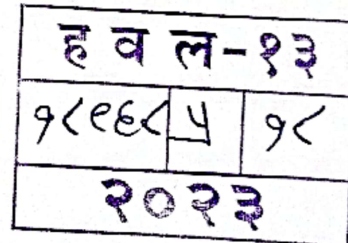 ह व ल-१३
१८९६८ ५ १८
२०२३